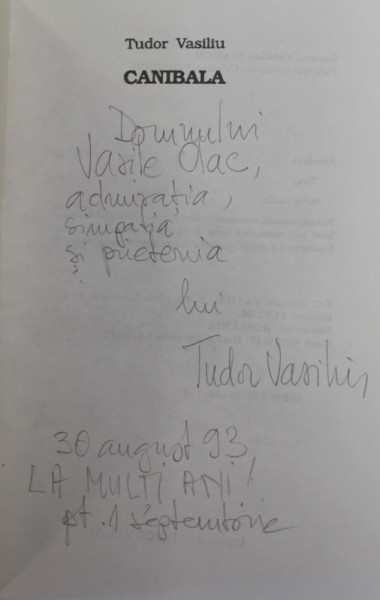 Tudor Vasiliu
CANIBALA
Domnului
Vasile Olac,
admirația,
simpatia
și prietenia
lui
Tudor Vasiliu
30 august 93,
LA MULȚI ANI!
pt. 1 septembrie